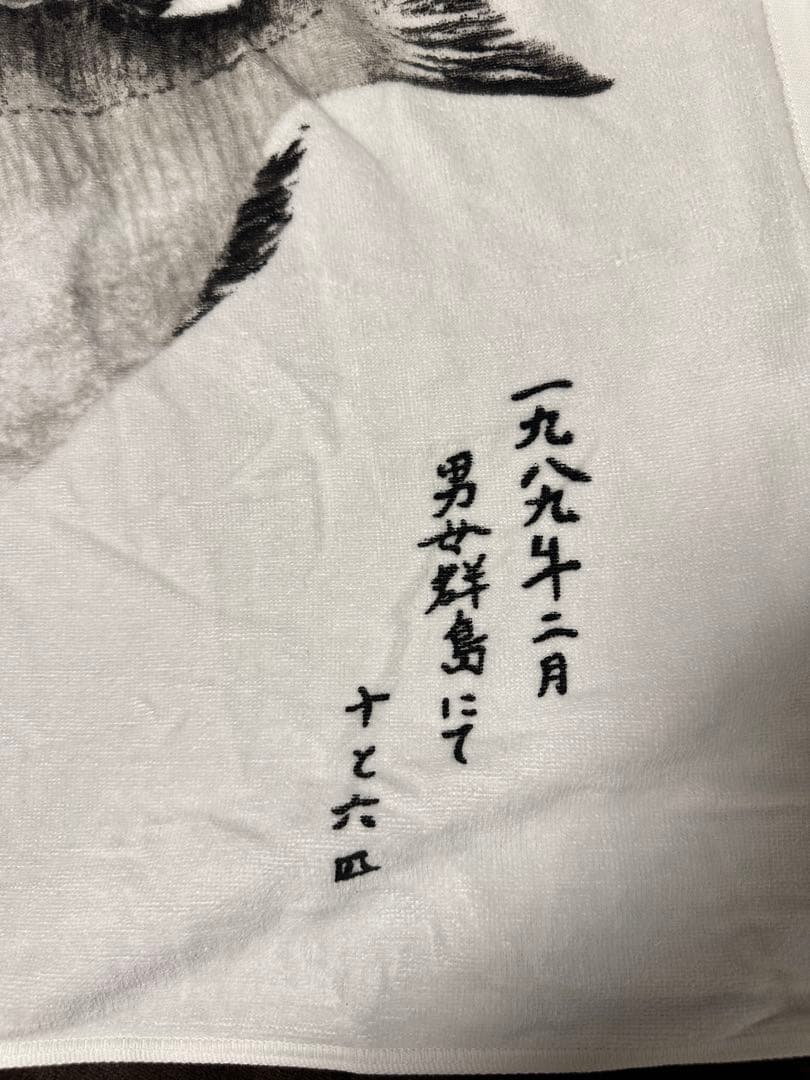 一九八九年二月
男女群島にて
十と六匹